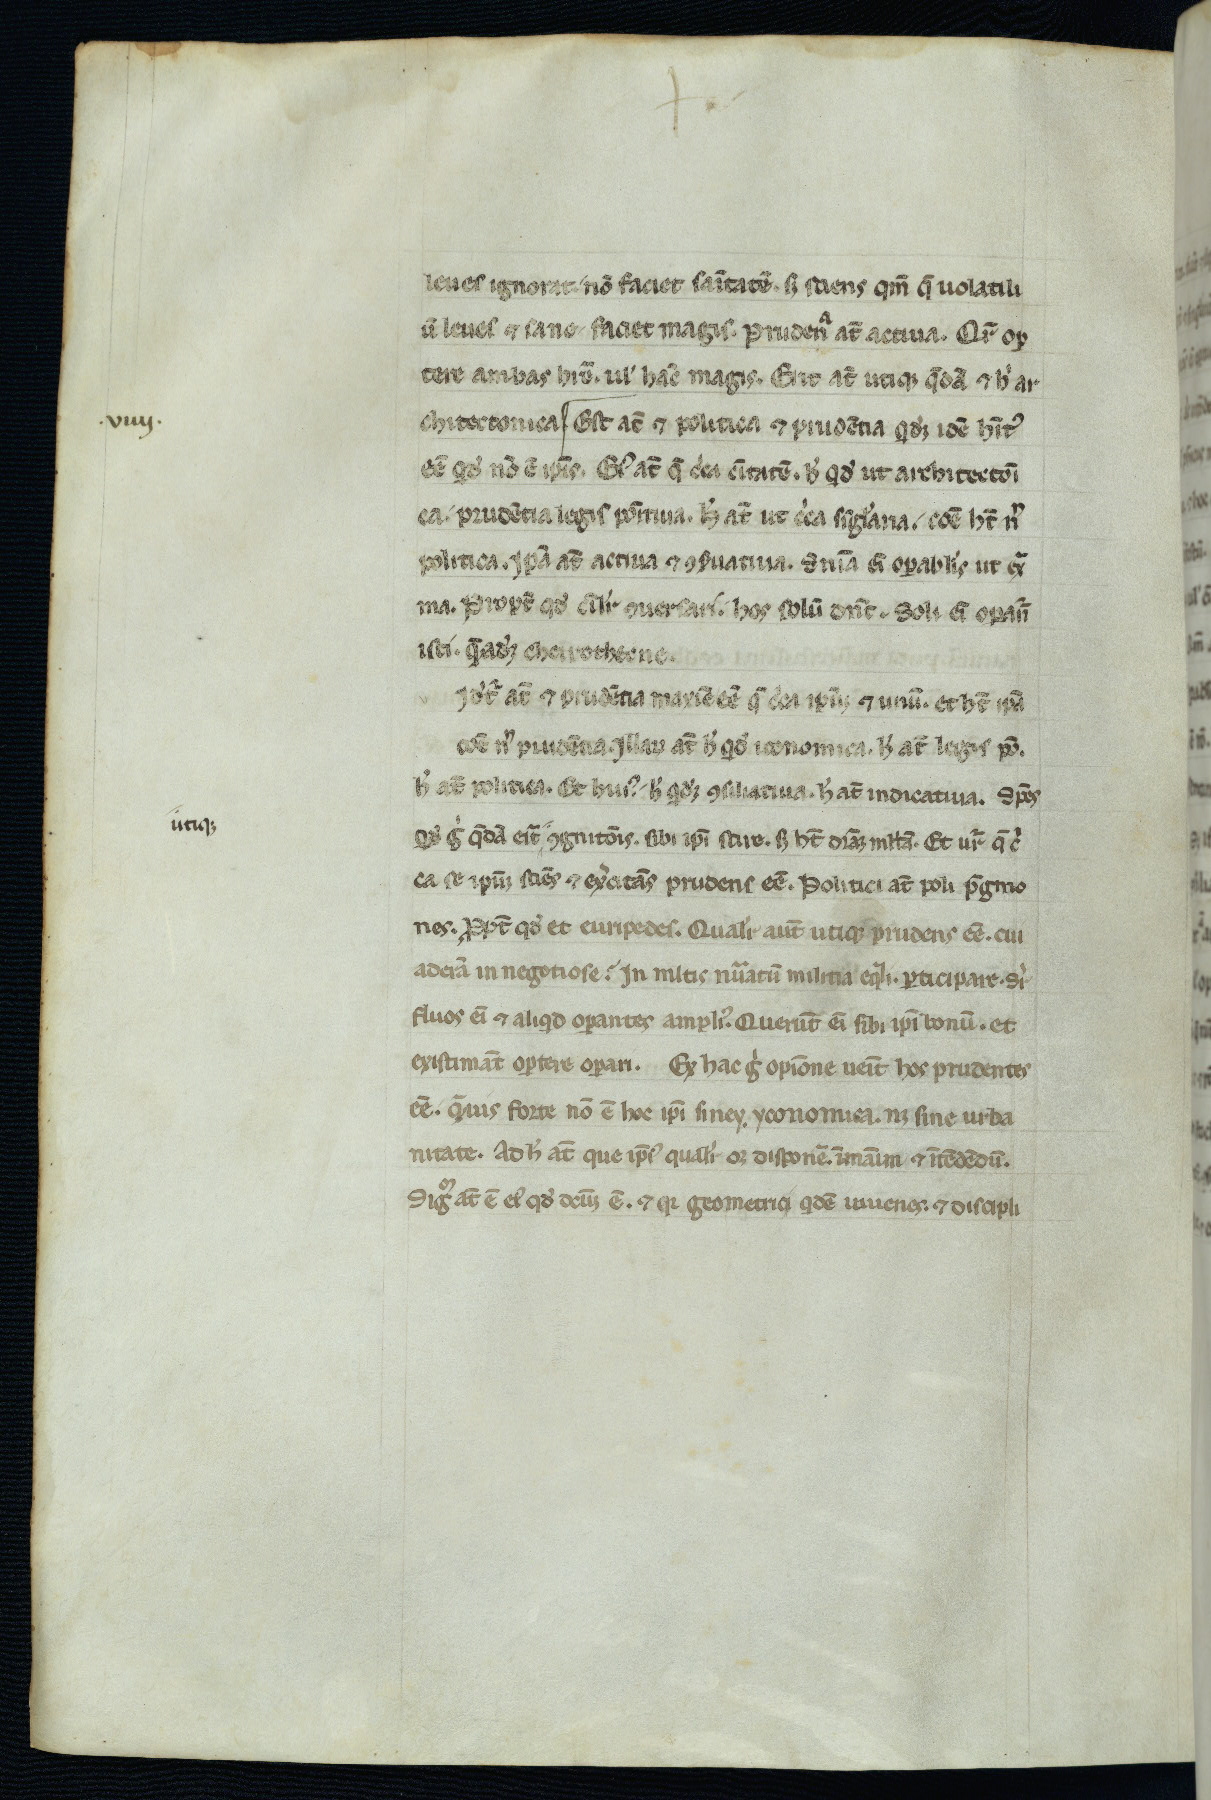 leues ignorat / nō faciet sāitatē. sꝫ sciens qm̄ q̄ uolatili
ū leues ⁊ sane / faciet magis. Prudenᵃ at̄ actiua. Qr̄ opꝫ
tere ambas hr̄e. ul' hāc magis. Erit at̄ utiqꝫ q̄dā ⁊ h' ar
.viij.
chitectonica Est at̄ ⁊ politica ⁊ prudētia qdꝫ idē hītꝰ
eē qd' nō ē ip̄is. Eiꝰ at̄ q̄ circa ciuitatē. h' qd' ut architectōi
ca / prudētia legis po᷑itiua. h' at̄ ut circa singl'aria / cōe ht̄ nō
politica. Ip̄a at̄ actiua ⁊ ꝯsiliatiua. Snīa ei opabl'is ut ex̄
ma. Propt̄ qd' ciuil'r ꝯuersari. hos solū dn̄t. Soli ei opant̄
isti. q̄adꝫ cheirothecne.
Idet᷑ at̄ ⁊ prudētia maxīe eē q̄ circa ip̄m ⁊ unū. et ht̄ ip̄a
cōe nō prudētia. Illaꝝ at̄ h' qd' iconomica. h' at̄ legis po.
h' at̄ politica. Et huiꝰ / h' qdꝫ ꝯsiliatiua. h' at̄ iudicatiua. Sp̄es
ūtiqꝫ
qd' g' q̄dā eit̄ ꝯgnitōis. sibi ip̄i scire. sꝫ ht̄ dr̄iaꝫ mltā. Et ur̄ q̄ cir
ca se ipm̄ sciēs ⁊ exercitās prudens eē. Politici at̄ poli p̄gmo
nes. Ppt̄ qd' et euripedes. Qual'r aut̄ utiqꝫ prudens eē. cui
aderā in negotiose? In mltis nūatū militia eq̄l'i. pticipare. Su
fluos ei ⁊ aliqd opantes ampliꝰ. Querūt ei sibi ip̄i bonū. et
existimāt optere opari. Ex hac g' opiōne ueīt hos prudentes
eē. q̄uis forte nō ē hoc ip̄i sine yconomica. nꝫ sine urba
nitate. Ad h' at̄ que ip̄iꝰ qual'r oꝫ disponē. imāim ⁊ ītēdēdū.
Sigᵐ at̄ ē eiꝰ qd' dcm̄ ē. ⁊ qr geometrici qdē iuuenes. ⁊ discipli